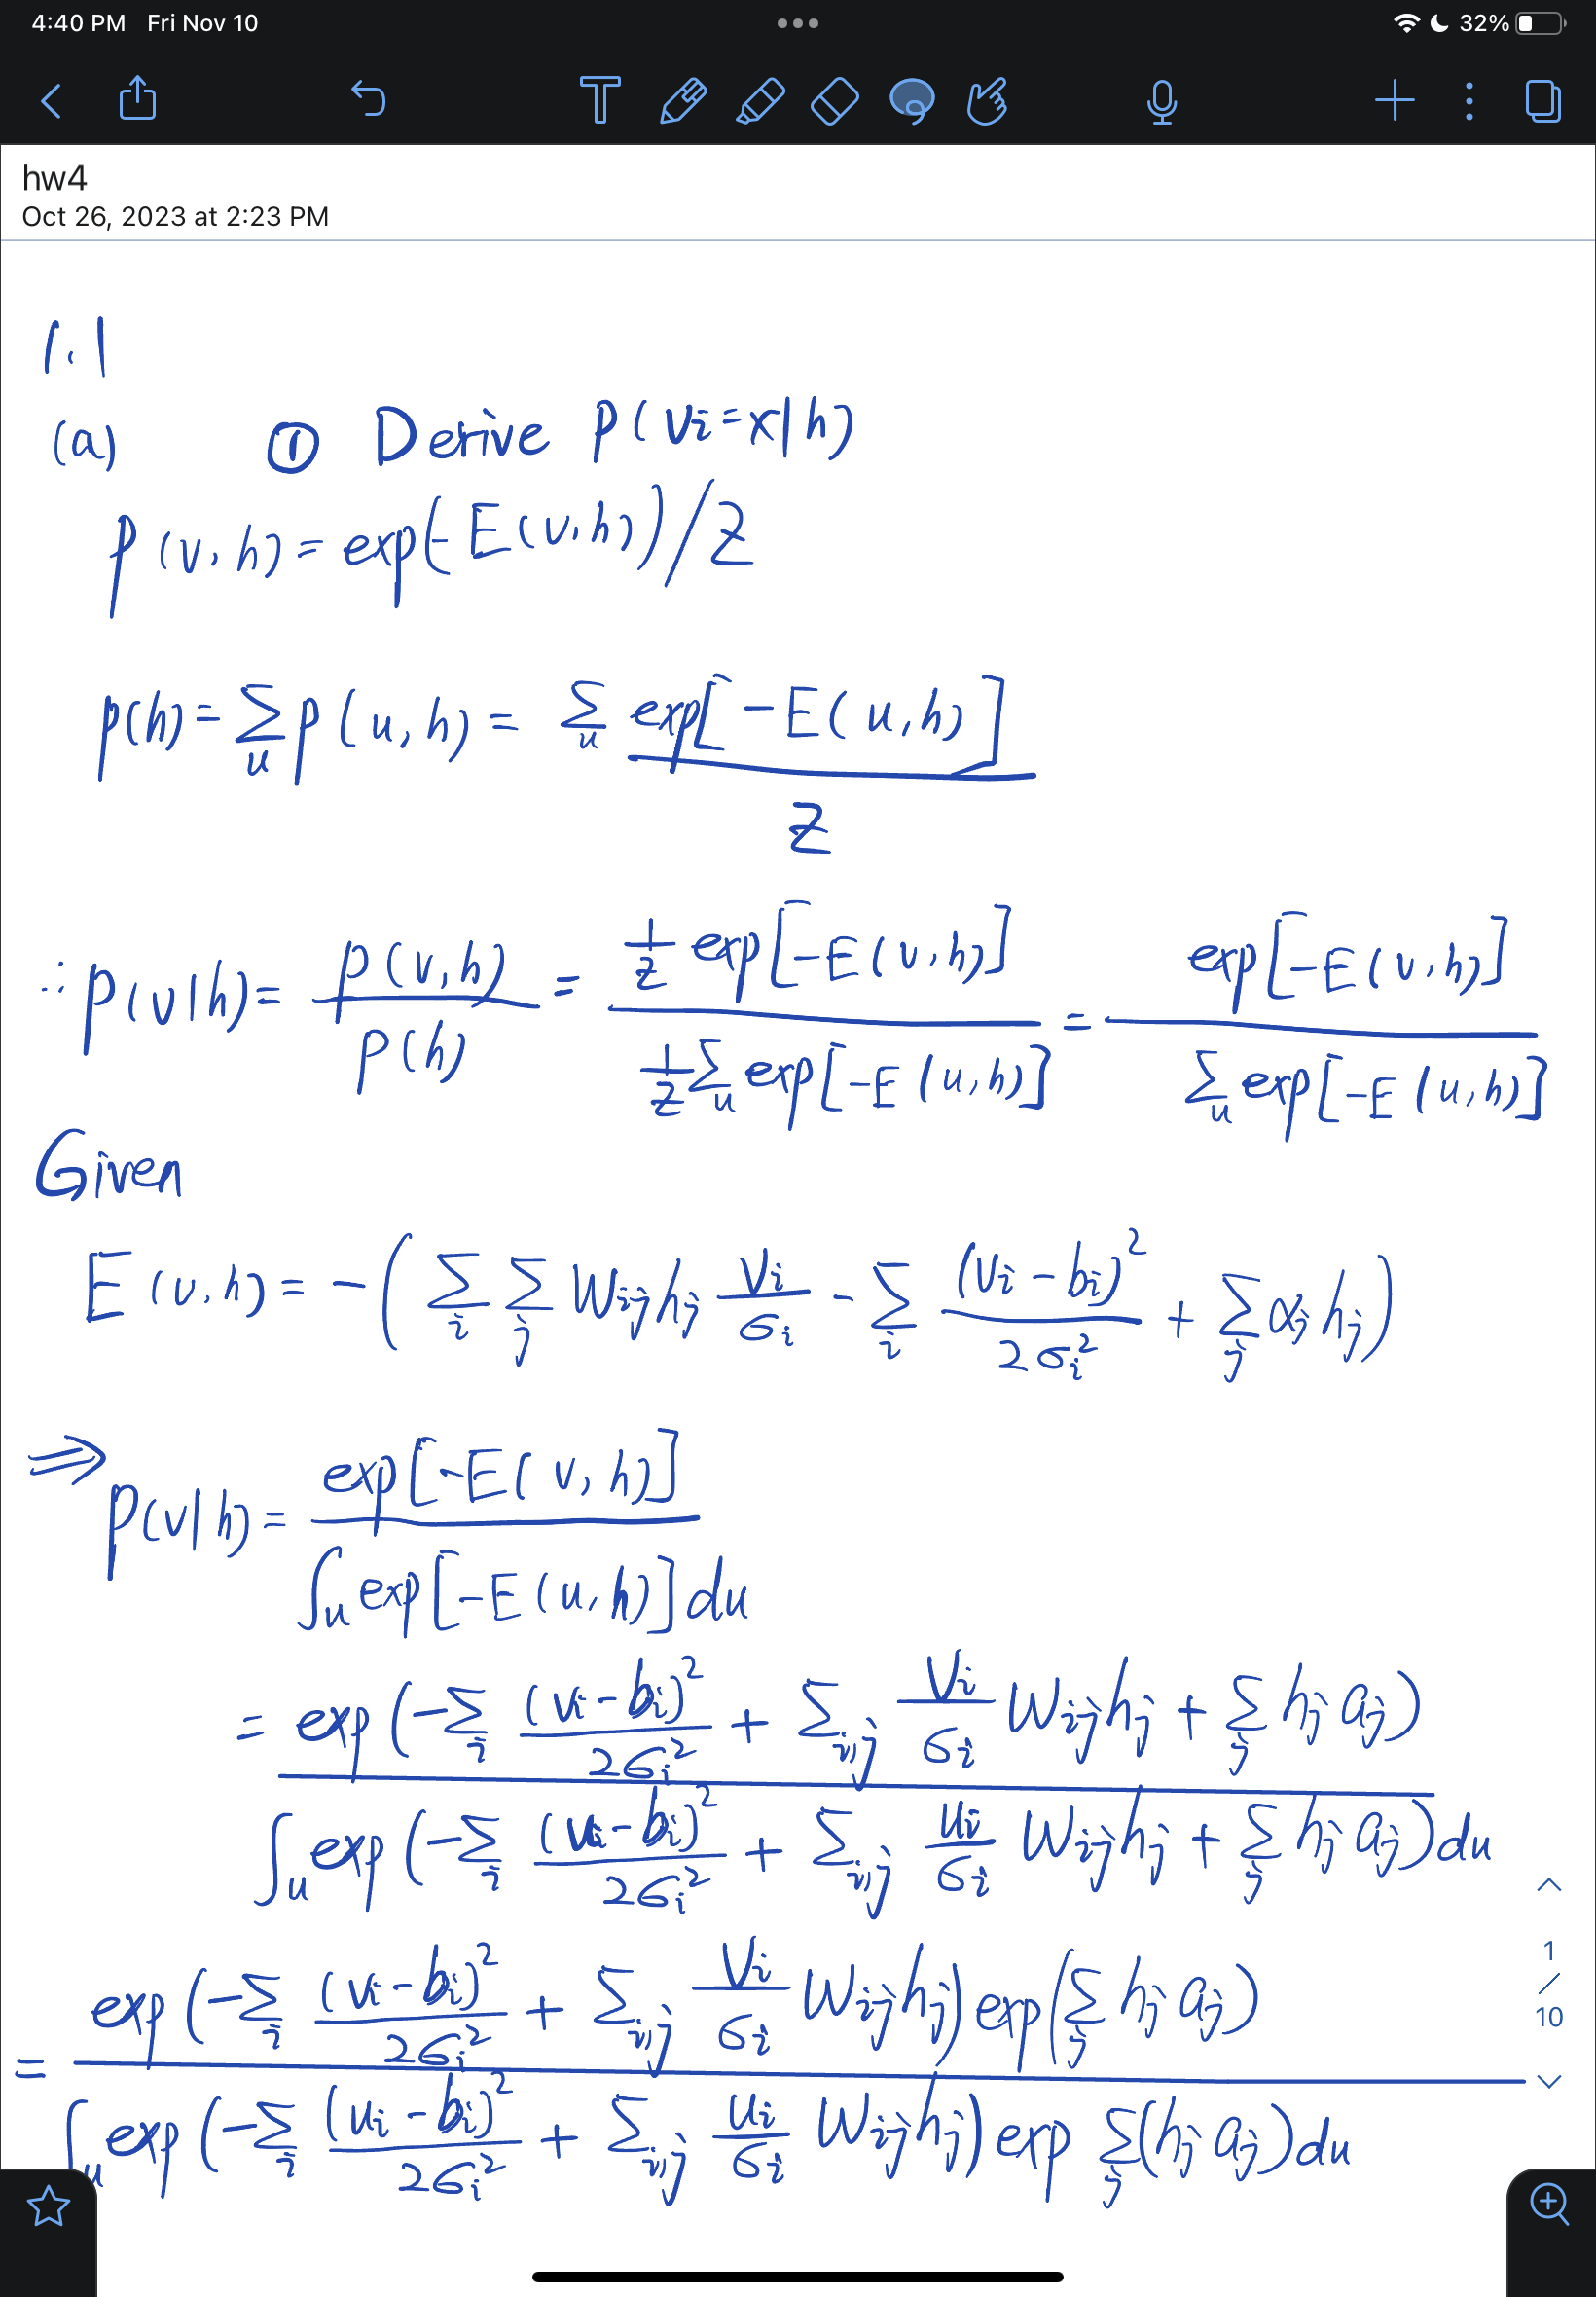 4:40 PM Fri Nov 10 32%
hw4
Oct 26, 2023 at 2:23 PM
1.1
(a) ① Derive P(vi=x|h)
P(v,h) = exp(-E(v,h))/Z
p(h) = Σ_u p(u,h) = Σ_u exp[-E(u,h)] / Z
∴ p(v|h) = p(v,h) / p(h) = 1/Z exp[-E(v,h)] / 1/Z Σ_u exp[-E(u,h)] = exp[-E(v,h)] / Σ_u exp[-E(u,h)]
Given
E(v,h) = -(Σ_i Σ_j Wij hj vi/σi - Σ_i (vi-bi)²/2σi² + Σ_j αj hj)
⇒ P(v|h) = exp[-E(v,h)] / ∫_u exp[-E(u,h)]du
= exp(-Σ_i (vi-bi)²/2σi² + Σ_i,j vi/σi Wij hj + Σ_j hj aj) / ∫_u exp(-Σ_i (ui-bi)²/2σi² + Σ_i,j ui/σi Wij hj + Σ_j hj aj)du
= exp(-Σ_i (vi-bi)²/2σi² + Σ_i,j vi/σi Wij hj) exp(Σ_j hj aj) / ∫_u exp(-Σ_i (ui-bi)²/2σi² + Σ_i,j ui/σi Wij hj) exp Σ_j(hj aj)du
1
/
10